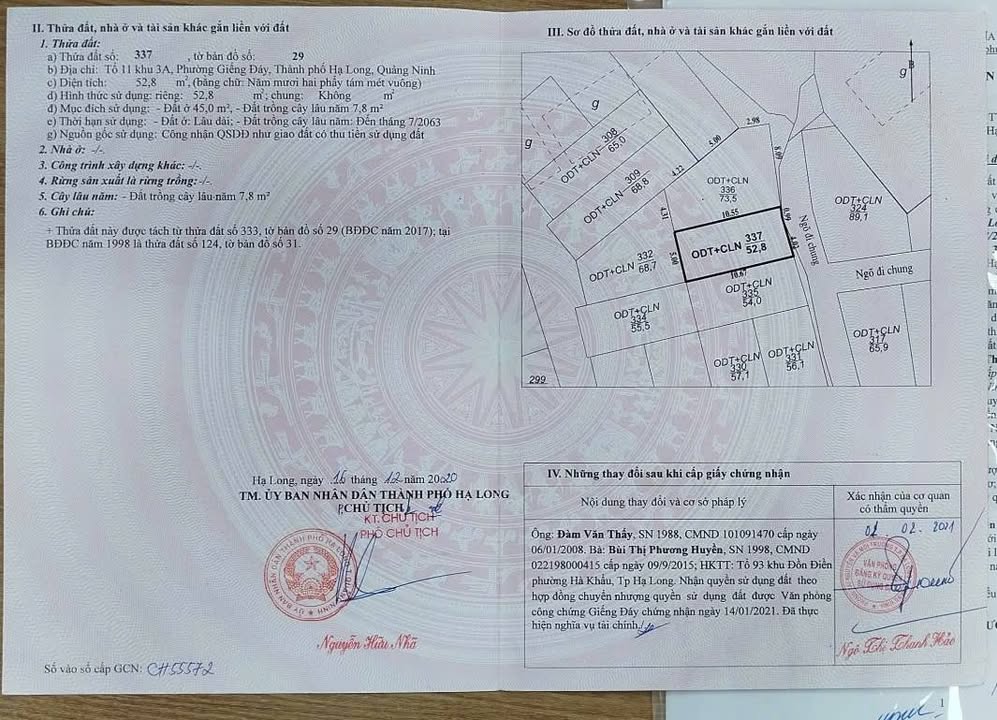 II. Thửa đất, nhà ở và tài sản khác gắn liền với đất
1. Thửa đất:
a) Thửa đất số: 337 , tờ bản đồ số: 29
b) Địa chỉ: Tổ 11 khu 3A, Phường Giếng Đáy, Thành phố Hạ Long, Quảng Ninh
c) Diện tích: 52,8 m², (bằng chữ: Năm mươi hai phẩy tám mét vuông)
d) Hình thức sử dụng: riêng: 52,8 m²; chung: Không m²
đ) Mục đích sử dụng: - Đất ở 45,0 m², - Đất trồng cây lâu năm 7,8 m²
e) Thời hạn sử dụng: - Đất ở: Lâu dài; - Đất trồng cây lâu năm: Đến tháng 7/2063
g) Nguồn gốc sử dụng: Công nhận QSDĐ như giao đất có thu tiền sử dụng đất
2. Nhà ở: -/-.
3. Công trình xây dựng khác: -/-.
4. Rừng sản xuất là rừng trồng:-/-.
5. Cây lâu năm: - Đất trồng cây lâu năm 7,8 m²
6. Ghi chú:
+ Thửa đất này được tách từ thửa đất số 333, tờ bản đồ số 29 (BĐĐC năm 2017); tại
BĐĐC năm 1998 là thửa đất số 124, tờ bản đồ số 31.
Hạ Long, ngày 16 tháng 12 năm 2020
TM. ỦY BAN NHÂN DÂN THÀNH PHỐ HẠ LONG
CHỦ TỊCH
KT. CHỦ TỊCH
PHÓ CHỦ TỊCH
Nguyễn Hữu Nhã
Số vào sổ cấp GCN: CH55572
III. Sơ đồ thửa đất, nhà ở và tài sản khác gắn liền với đất
B
g
g
g
2.98
5.00
8.09
ODT+CLN 308
65,0
4.22
ODT+CLN 309
68,8
ODT+CLN
336
73,5
ODT+CLN
324
89,1
4.31
10.55
0.99
ODT+CLN 337
52,8
4.02
Ngõ đi chung
5.00
ODT+CLN 332
68,7
10.67
Ngõ đi chung
ODT+CLN
335
54,0
ODT+CLN
334
55,5
ODT+CLN
317
65,9
ODT+CLN
330
57,1
ODT+CLN
331
56,1
299
IV. Những thay đổi sau khi cấp giấy chứng nhận
Nội dung thay đổi và cơ sở pháp lý
Xác nhận của cơ quan
có thẩm quyền
Ông: Đàm Văn Thấy, SN 1988, CMND 101091470 cấp ngày
06/01/2008. Bà: Bùi Thị Phương Huyền, SN 1998, CMND
022198000415 cấp ngày 09/9/2015; HKTT: Tổ 93 khu Đồn Điền
phường Hà Khẩu, Tp Hạ Long. Nhận quyền sử dụng đất theo
hợp đồng chuyển nhượng quyền sử dụng đất được Văn phòng
công chứng Giếng Đáy chứng nhận ngày 14/01/2021. Đã thực
hiện nghĩa vụ tài chính./
02 02 - 2021
VĂN PHÒNG
ĐĂNG KÝ QUYỀN
Ngô Thị Thanh Hảo
1